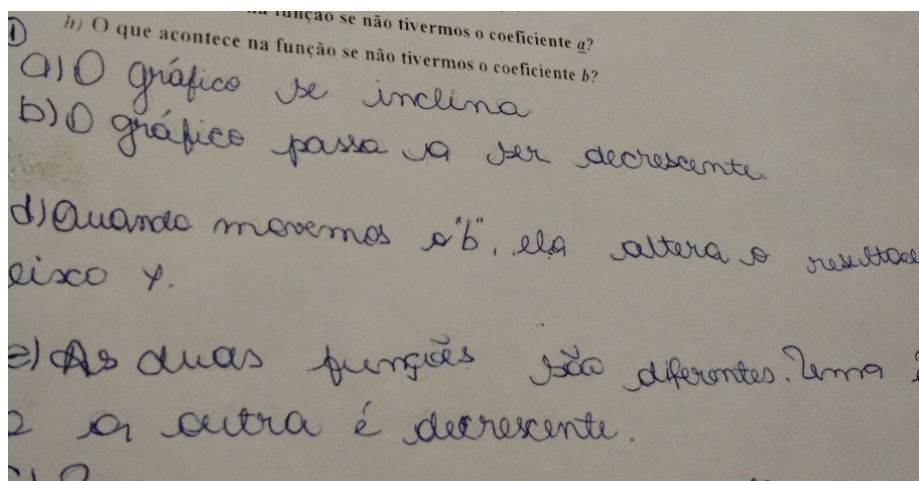 função se não tivermos o coeficiente a?
1) h) O que acontece na função se não tivermos o coeficiente b?
a) O gráfico se inclina
b) O gráfico passa a ser decrescente.
d) Quando movemos o "b", ela altera o
eixo y.
e) As duas funções são diferentes. Uma
a outra é decrescente.